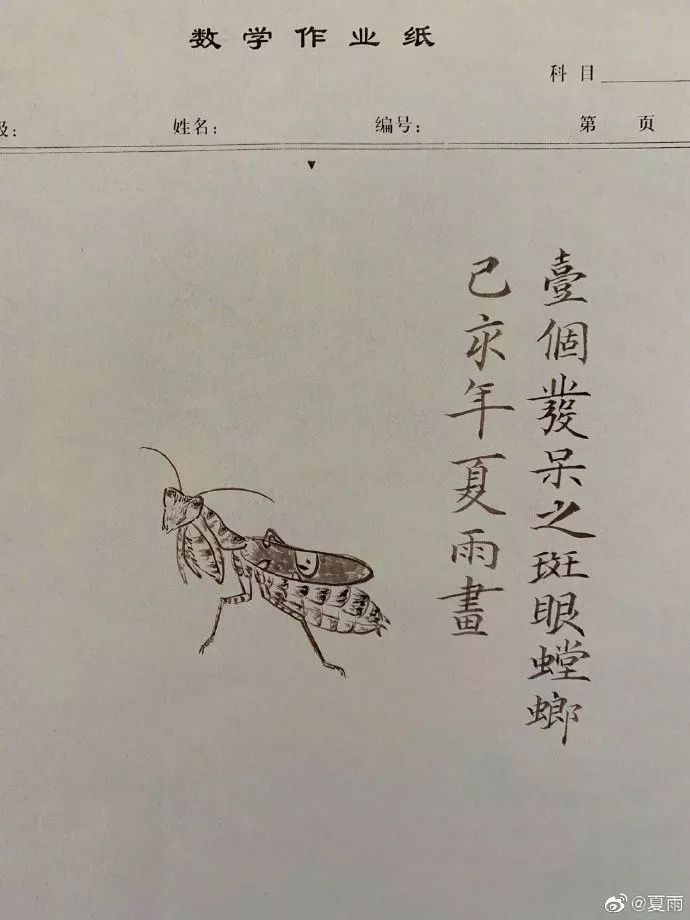 数学作业纸
科目
级:
姓名:
编号:
第 页
壹個發呆之斑眼螳螂
己亥年夏雨畫
@夏雨